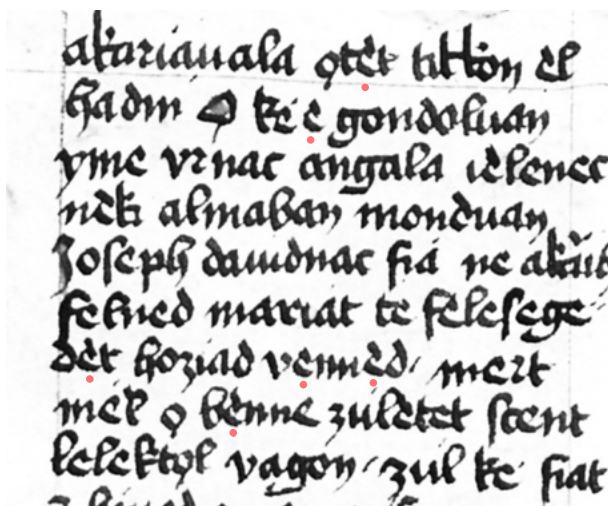 akariauala ǫtėt titkon èl
hadni Ǫ kè ė gondoluan
yme vrnac angala ièlenec
nèki almaban monduan
Joseph dauidnac fia ne akari
felned mariat te fèlesege
dėt hoziad vėnnėd / mert
mèl ǫ bėnne zùlètet scent
lelektǫl vagon / zùl kè fiat